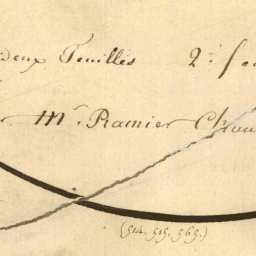 deux Feuilles 2.e feu
Mr. Ramier Chau
(514. 515. 565.)